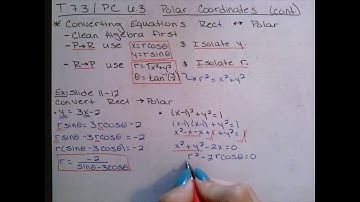 T 7.3 / PC 6.3 Polar Coordinates (cont)
* Converting Equations Rect ↔ Polar
- Clean Algebra first
- P→R use x=rcosθ y=rsinθ & Isolate y.
- R→P use r=√x²+y² θ=tan⁻¹(y/x) & Isolate r.
→ r²=x²+y²
Ex: Slide 11-12
Convert Rect → Polar
• y = 3x-2
rsinθ = 3rcosθ-2
rsinθ-3rcosθ=-2
r(sinθ-3cosθ)=-2
r = -2/sinθ-3cosθ
• (x-1)²+y²=1
(x-1)(x-1)+y²=1
x²-x-x+1+y²=1
x²+y²-2x=0
r²-2rcosθ=0